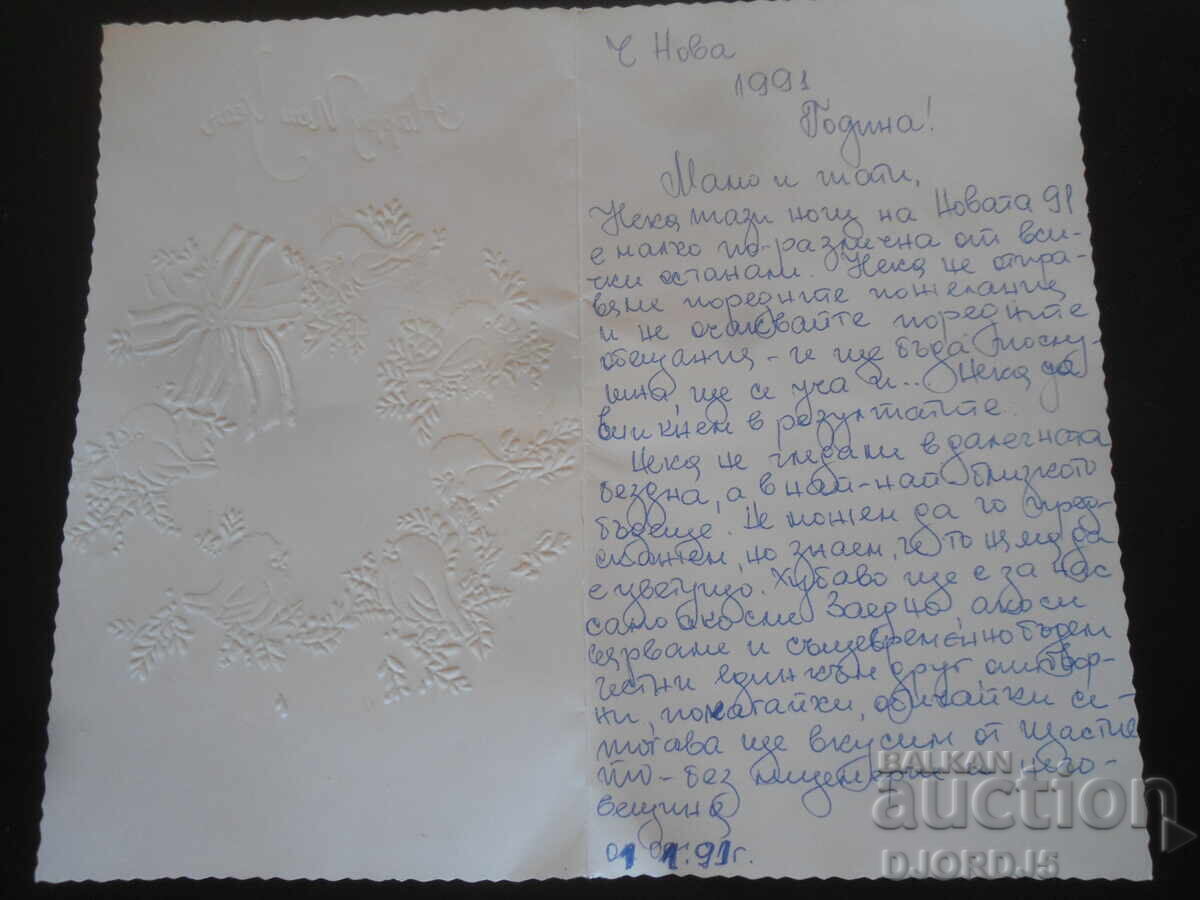 Happy New Year
Ч Нова
1991
Година!
Мамо и тати,
Нека тази нощ на Новата 91
е малко по-различна от вси-
чки останали. Нека не отпра-
вяме поредните пожелания
и не очаквайте поредните
обещания - че ще бъда послу-
шна, ще се уча и.. Нека да
вникнем в резултатите.
Нека не гледаме в далечната
бездна, а в най-най близкото
бъдеще. Не можем да го пред-
скажем, но знаем, че то няма да
е цветущо. Хубаво ще е за нас
само ако сме Заедно, ако си
вярваме и същевременно бъдем
честни един към друг, отговор-
ни, помагайки, обичайки се -
тогава ще вкусим от щастие
то - без лицемерие и
вещина
01 01.91г.
BALKAN
auction
DJORDJ5